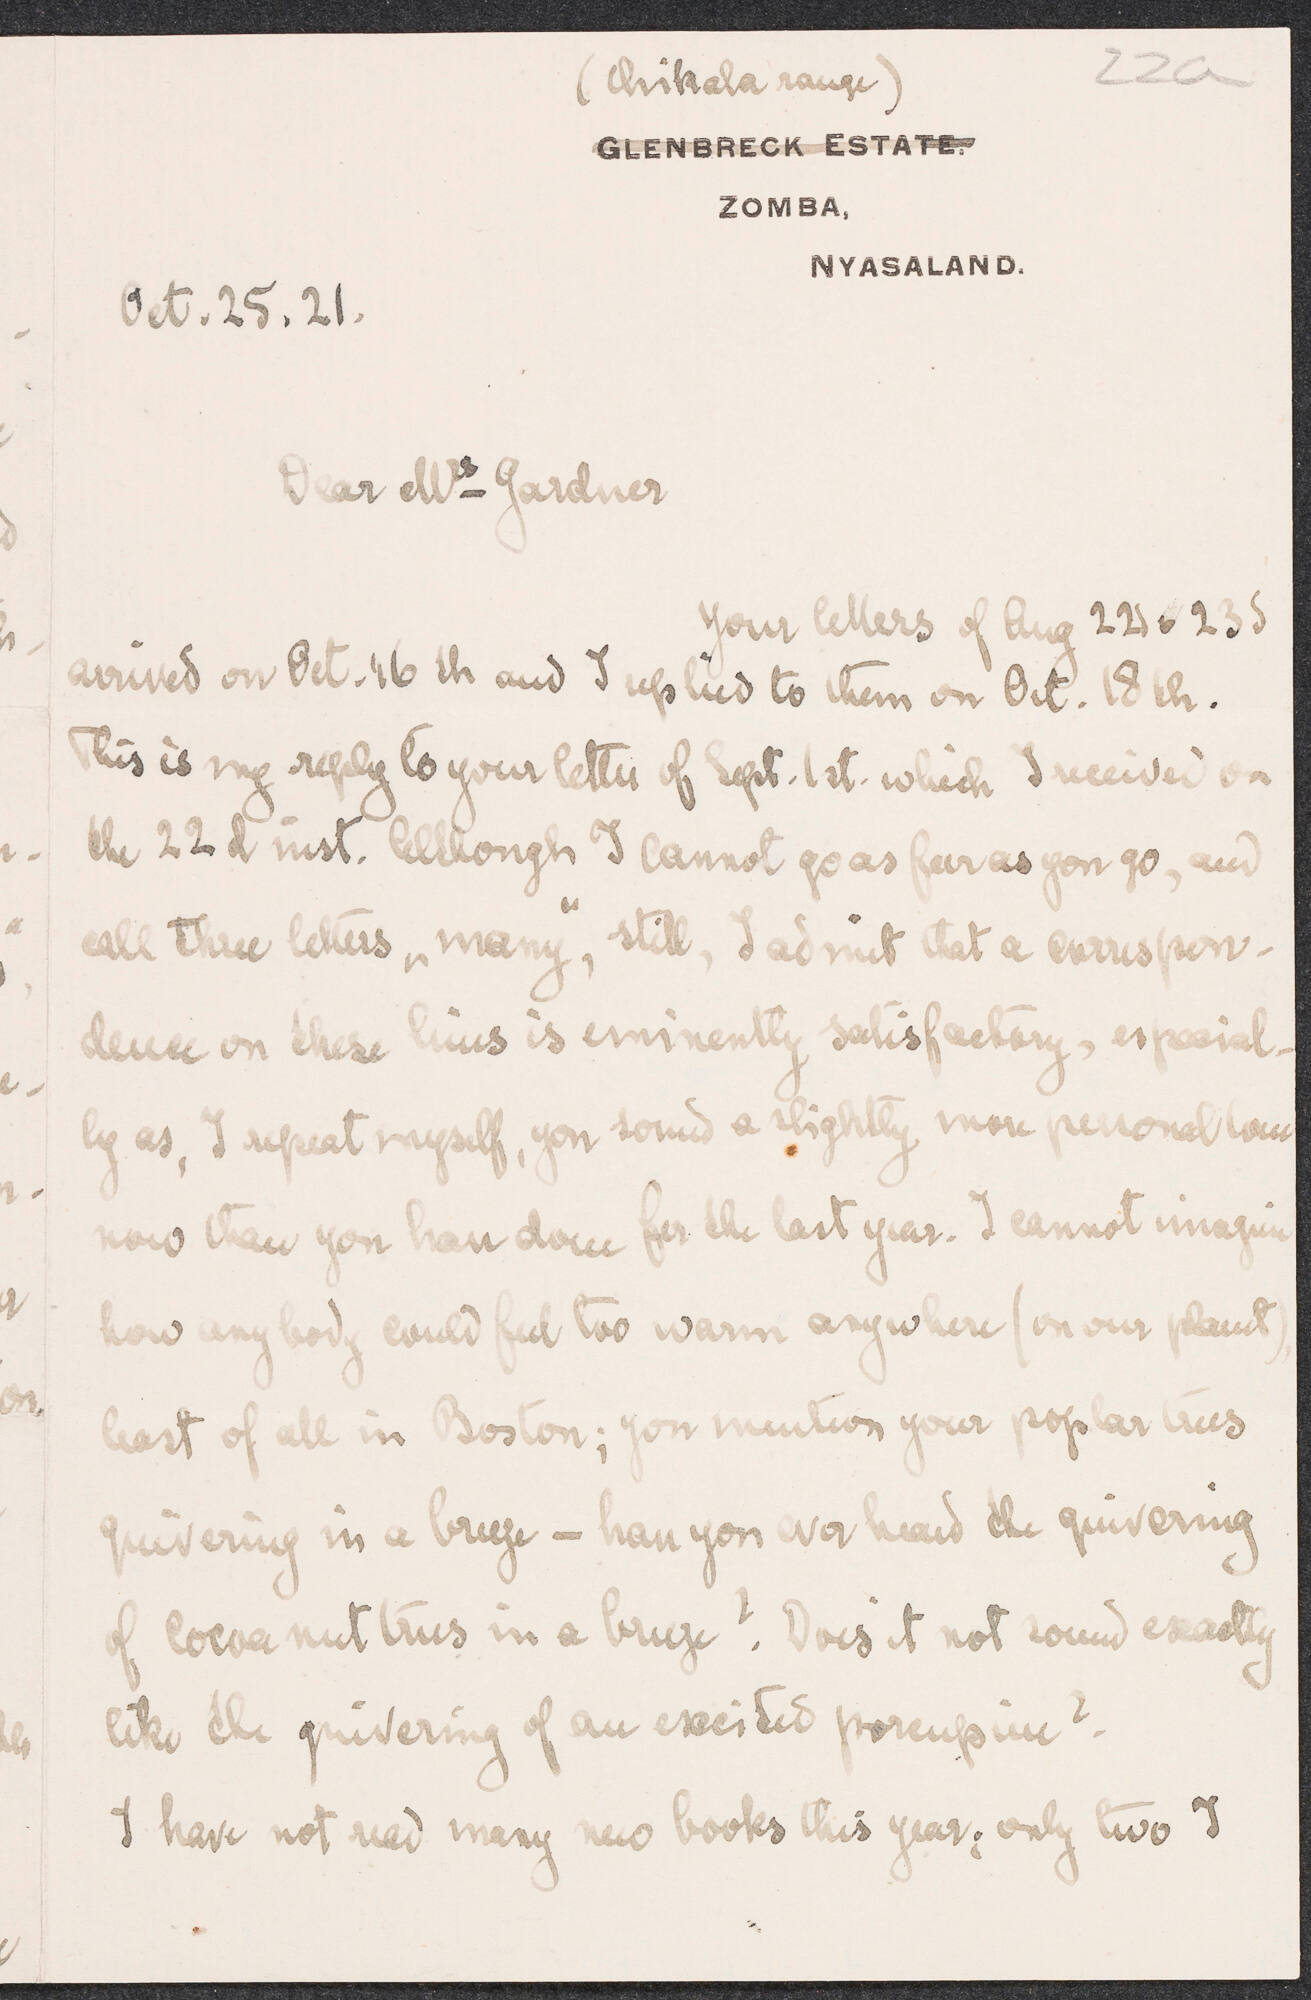 22a
(Chikala range)
GLENBRECK ESTATE.
ZOMBA,
NYASALAND.
Oct. 25. 21.
Dear Mrs Gardner
Your letters of Aug 22d & 23d
arrived on Oct. 16 th and I replied to them on Oct. 18 th.
This is my reply to your letter of Sept. 1st. which I received on
the 22 d inst. Although I cannot go as far as you go, and
call three letters „many“, still, I admit that a correspon-
dence on these lines is eminently satisfactory, especial-
ly as, I repeat myself, you sound a slightly more personal tone
now than you have done for the last year. I cannot imagine
how anybody could feel too warm anywhere (on our planet),
least of all in Boston; you mention your poplar trees
quivering in a breeze – have you ever heard the quivering
of cocoa nut trees in a breeze?. Does it not sound exactly
like the quivering of an excited porcupine?.
I have not read many new books this year; only two I